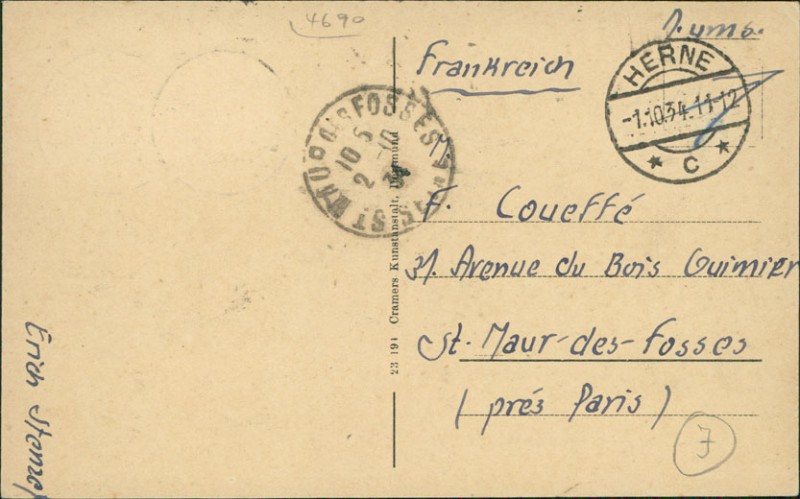 4690
Frankreich
HERNE
-1.10.34.11-12
* C *
ST MAUR DES FOSSES
10 5
2 10
M.
F. Coueffé
31. Avenue du Bois Guimier
St. Maur-des-Fosses
(prés Paris)
J
23 194 Cramers Kunstanstalt, Dortmund
Erich